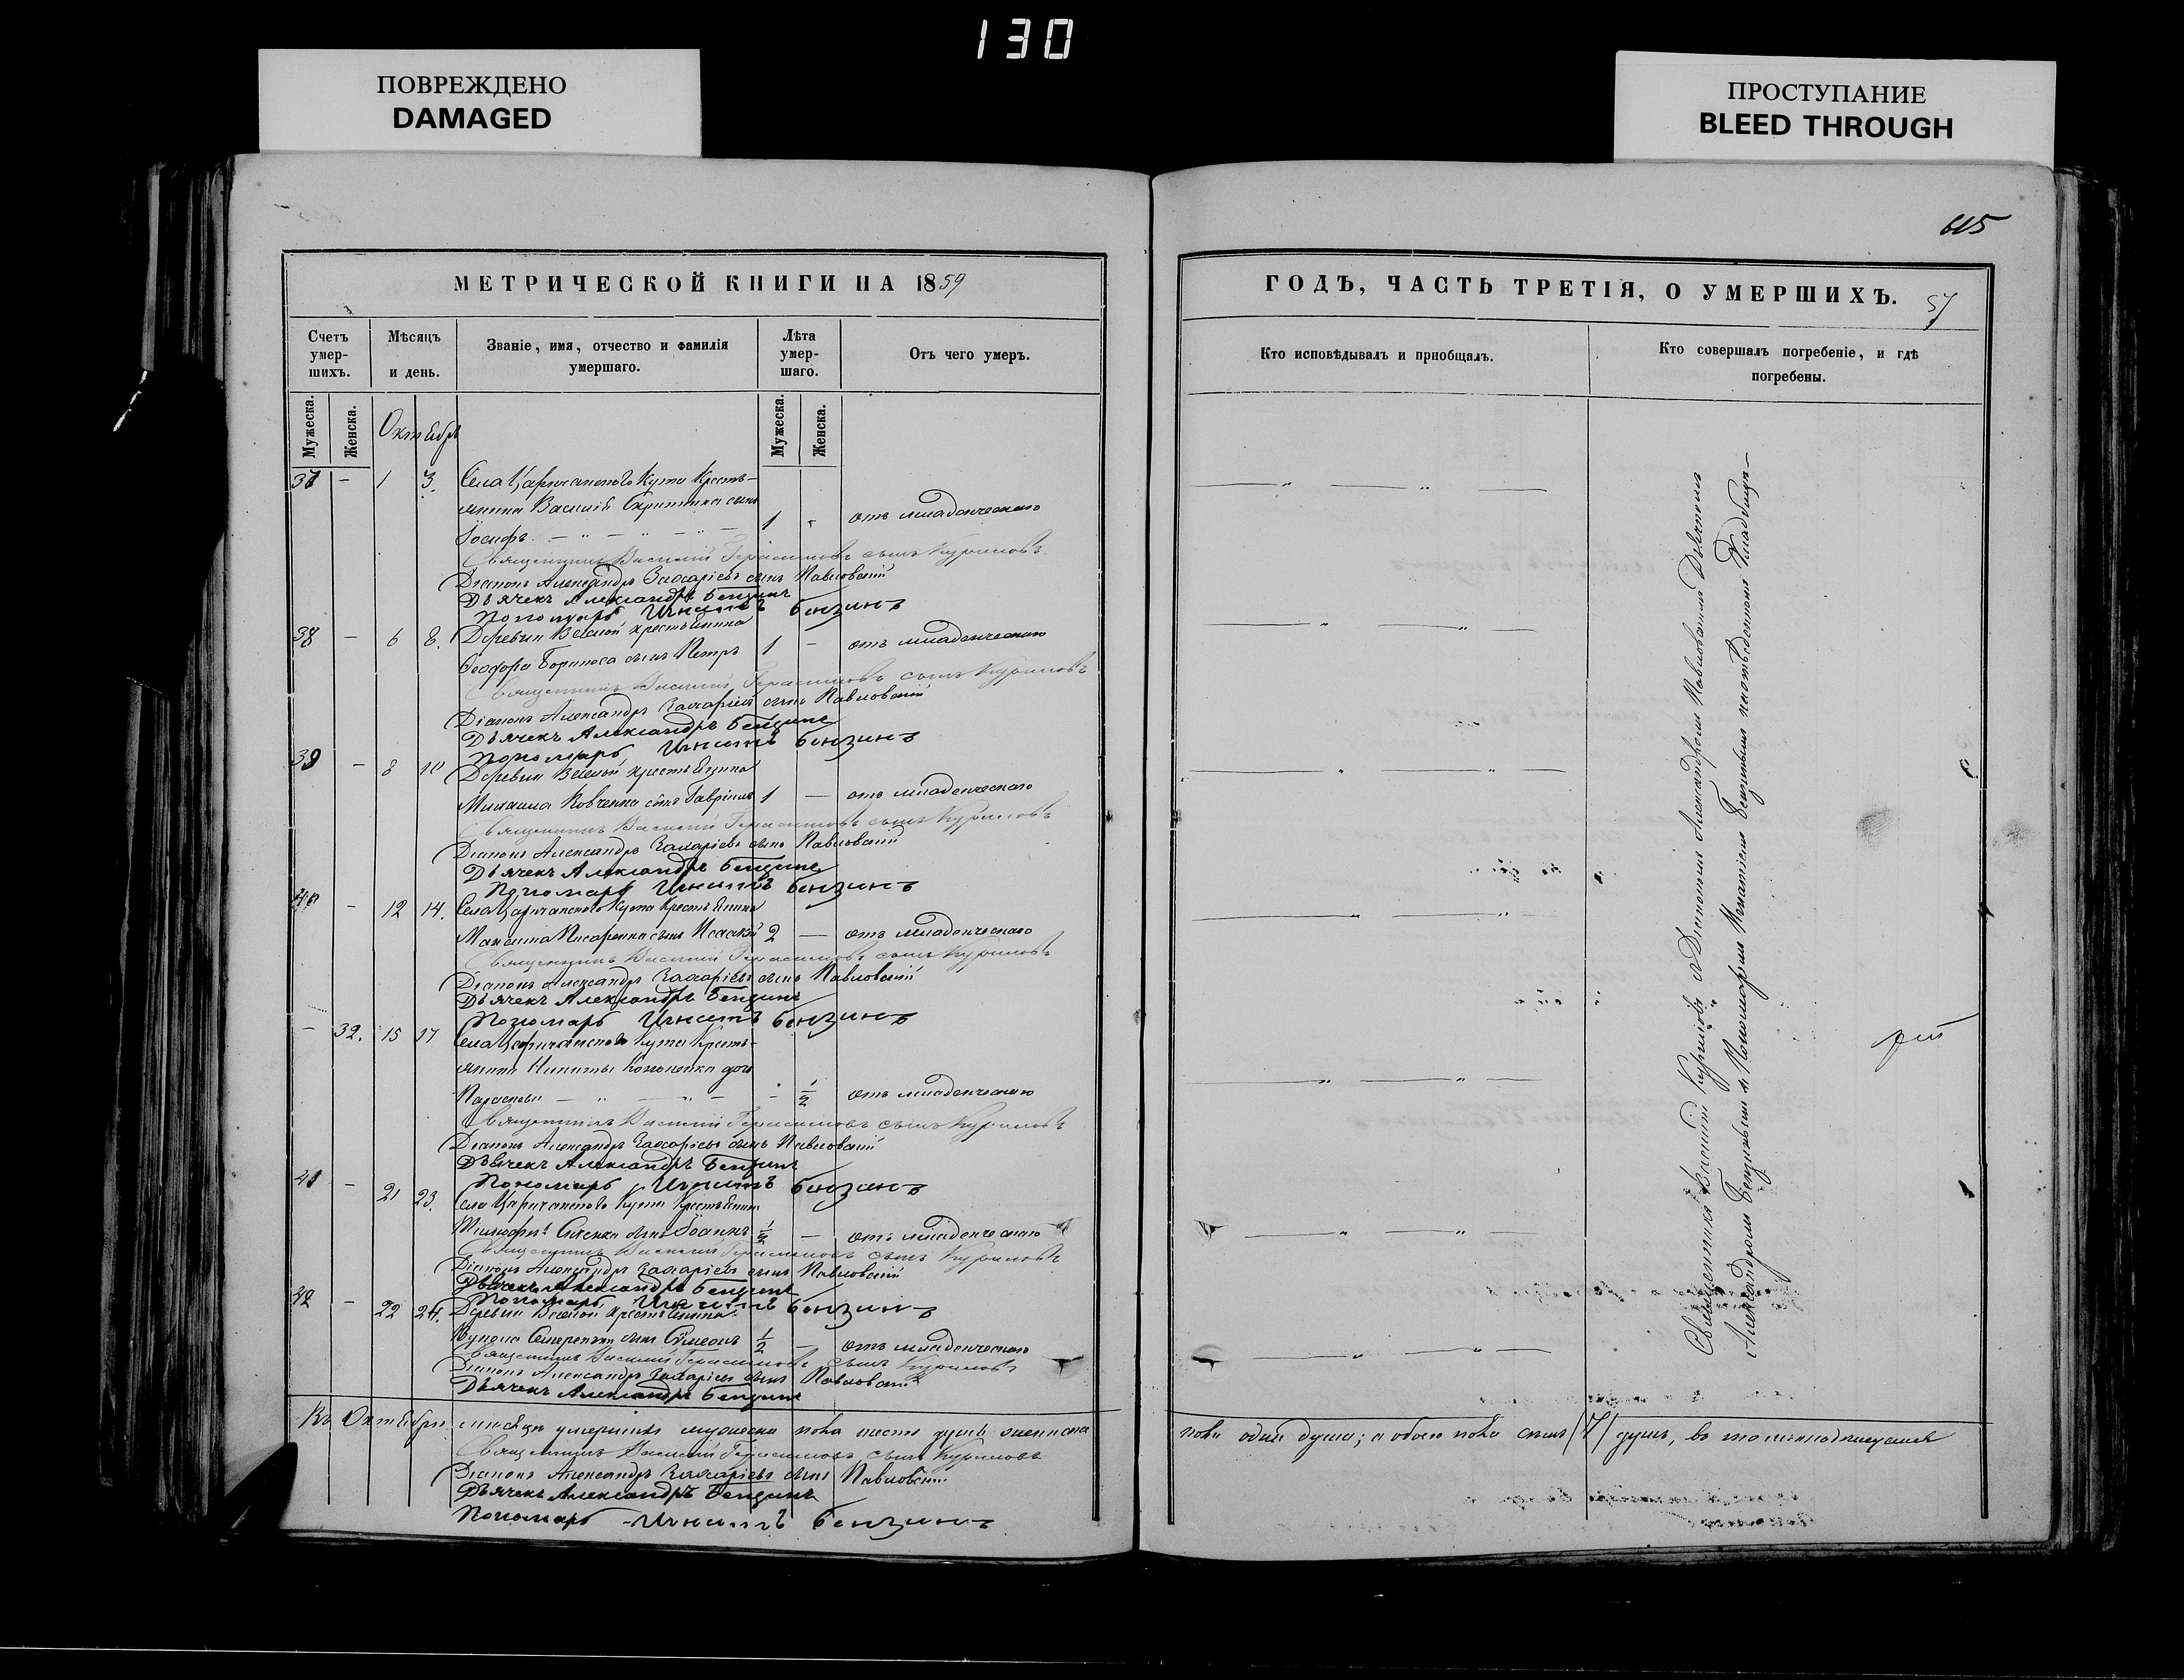 130
ПОВРЕЖДЕНО
DAMAGED
ПРОСТУПАНИЕ
BLEED THROUGH
МЕТРИЧЕСКОЙ КНИГИ НА 1859
Счетъ умер-шихъ.
Мѣсяцъ и день.
Званіе, имя, отчество и фамилія умершаго.
Лѣта умер-шаго.
Отъ чего умеръ.
Мужеска.
Женска.
Октябрь
Мужеска.
Женска.
37 – 1 3. Села Царичанского Кута Кресть-
янина Василія сынъ
Іосифъ 1 отъ младенческаго
Священникъ Василий Герасимовъ сынъ Куриловъ
Діаконъ Александръ Захаріевъ сынъ Павловскій
Дьячекъ Александръ Бензинъ
Пономарь Игнатъ Бензинъ
38 – 6 8. Деревни крестьянина
Феодора сынъ Петръ 1 – отъ младенческаго
Священникъ Василий Герасимовъ сынъ Куриловъ
Діаконъ Александръ Захаріевъ сынъ Павловскій
Дьячекъ Александръ Бензинъ
Пономарь Игнатъ Бензинъ
39 – 8 10 Деревни крестьянина
Михаила Ковченка сынъ Гавріилъ 1 – отъ младенческаго
Священникъ Василий Герасимовъ сынъ Куриловъ
Діаконъ Александръ Захаріевъ сынъ Павловскій
Дьячекъ Александръ Бензинъ
Пономарь Игнатъ Бензинъ
40 – 12 14. Села Царичанского Кута Крестьянина
Максима Писаренка сынъ Исаакій 2 – отъ младенческаго
Священникъ Василий Герасимовъ сынъ Куриловъ
Діаконъ Александръ Захаріевъ сынъ Павловскій
Дьячекъ Александръ Бензинъ
Пономарь Игнатъ Бензинъ
– 32. 15 17 Села Царичанского Кута Кресть-
янина Никиты Кононенка дочь
Параскева – 1/2 отъ младенческаго
Священникъ Василий Герасимовъ сынъ Куриловъ
Діаконъ Александръ Захаріевъ сынъ Павловскій
Дьячекъ Александръ Бензинъ
Пономарь Игнатъ Бензинъ
41 – 21 23. Села Царичанского Кута Крестьянина
сынъ Іоаннъ 1/2 – отъ младенческаго
Священникъ Василий Герасимовъ сынъ Куриловъ
Діаконъ Александръ Захаріевъ сынъ Павловскій
Дьячекъ Александръ Бензинъ
Пономарь Игнатъ Бензинъ
42 – 22 24. Деревни крестьянина
сынъ Сѵмеонъ 1/2 – отъ младенческаго
Священникъ Василий Герасимовъ сынъ Куриловъ
Діаконъ Александръ Захаріевъ сынъ Павловскій
Дьячекъ Александръ Бензинъ
Въ Октябрѣ мѣсяцѣ умершихъ мужеска пола шесть душъ женска
Священникъ Василий Герасимовъ сынъ Куриловъ
Діаконъ Александръ Захаріевъ сынъ Павловскій
Дьячекъ Александръ Бензинъ
Пономарь Игнатъ Бензинъ
615
ГОДЪ, ЧАСТЬ ТРЕТІЯ, О УМЕРШИХЪ.
57
Кто исповѣдывалъ и пріобщалъ.
Кто совершалъ погребеніе, и гдѣ погребены.
Священникъ Василій Куриловъ съ Діакономъ Александромъ Павловскимъ Дьячкомъ
Александромъ Бензинымъ и Пономаремъ Игнатіемъ Бензинымъ Кладбищѣ
пола одна душа; а обоего пола семь /7/ душъ, въ томъ и подписуемся